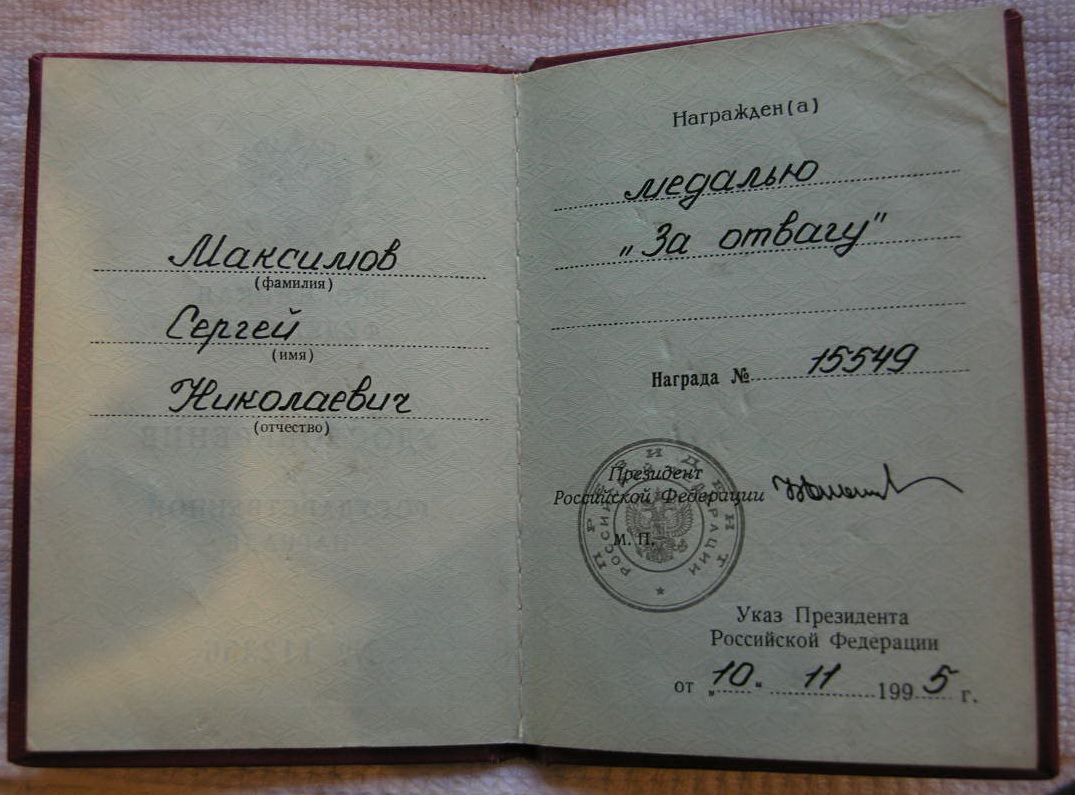 Максимов
(фамилия)
Сергей
(имя)
Николаевич
(отчество)
Награжден(а)
медалью
„За отвагу"
Награда № 15549
Президент
Российской Федерации
М. П.
ПРЕЗИДЕНТ
РОССИЙСКОЙ ФЕДЕРАЦИИ
Указ Президента
Российской Федерации
от „10" 11 1995 г.